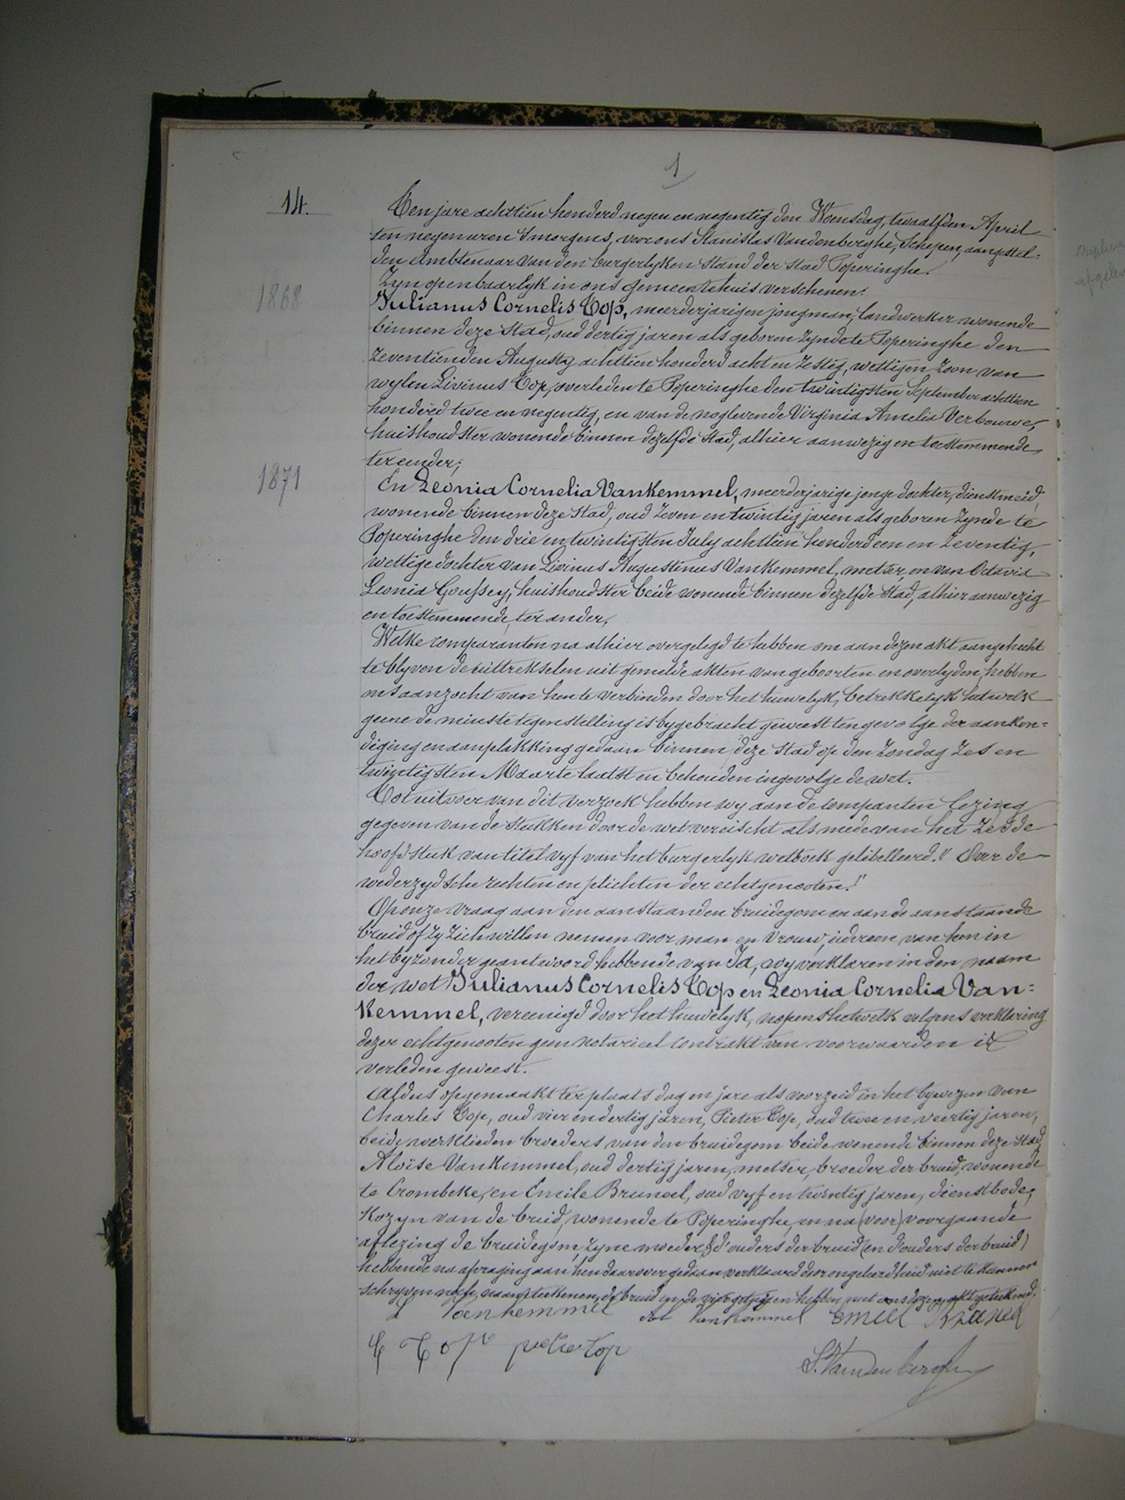 1
14.
Ten jare achttien honderd negen en negentig den Woensdag, twaalfden April
ten negen uren 's morgens, voor ons Stanislas Vandenberghe, Schepen, aangestel-
den Ambtenaar van den burgerlyken stand der stad Poperinghe.
Zyn openbaarlyk in ons gemeentehuis verschenen:
1868
Julianus Cornelis Top, meerderjarigen jongman, landwerker wonende
binnen deze stad, oud dertig jaren als geboren zynde te Poperinghe den
zeventienden Augusty achttien honderd acht en zestig, wettigen zoon van
wylen Livinus Top, overleden te Poperinghe den twintigsten September achttien
honderd twee en negentig, en van de noglevende Virginia Amelia Verbouwe,
huishoudster wonende binnen dezelfde stad, alhier aanwezig en toestemmende,
ter eender;
1871
En Leonia Cornelia Vankemmel, meerderjarige jonge dochter, dienstmeid,
wonende binnen deze stad, oud zeven en twintig jaren als geboren zynde te
Poperinghe den drie en twintigsten July achttien honderd een en zeventig,
wettige dochter van Livinus Augustinus Vankemmel, metser, en van Octavia
Leonia Goussey, huishoudster beide wonende binnen dezelfde stad, alhier aanwezig
en toestemmende, ter ander,
Welke comparanten na alhier overgelegd te hebben om aan dezen akt aangehecht
te blyven de uittrekselen uit gemelde akten van geboorten en overlyden, hebben
ons aanzocht van hen te verbinden door het huwelyk, betrekkelyk hetwelk
geene de minste tegenstelling is bygebracht geweest ten gevolge der aankon-
diging en aanplakking gedaan binnen deze stad op den zondag zes en
twintigsten Maarte laatst en behouden ingevolge de wet.
Tot uitvoer van dit verzoek hebben wy aan de companten lezing
gegeven van de stukken door de wet vereischt als mede van het zesde
hoofdstuk van titel vyf van het burgerlyk wetboek gelibelleerd: " Over de
wederzydsche rechten en plichten der echtgenooten."
Op onze vraag aan den aanstaanden bruidegom en aan de aanstaande
bruid of zy zich willen nemen voor man en vrouw, iedereen van hen in
het byzonder geantwoord hebbende van Ja, wy verklaren in den naam
der wet Julianus Cornelis Top en Leonia Cornelia Van-
kemmel, vereenigd door het huwelyk, nopens hetwelk volgens verklaring
dezer echtgenooten geen notarieel contrakt van voorwaarden is
verleden geweest.
Aldus opgemaakt ter plaats dag en jare als voorzeid in het bywezen van
Charles Top, oud vier en dertig jaren, Pieter Top, oud twee en veertig jaren,
beide werklieden broeders van den bruidegom beide wonende binnen deze stad,
Aloïse Vankemmel, oud dertig jaren, metser, broeder der bruid, wonende
te Crombeke, en Emile Bruneel, oud vyf en twintig jaren, dienstbode,
kozyn van de bruid, wonende te Poperinghe, en na (voor) voorgaande
aflezing de bruidegom, zyne moeder & d'ouders der bruid (en d'ouders der bruid)
hebbende na afvraging aan hen daarover gedaan verklaard door ongeleerdheid niet te kunnen
schryven noch naamteekenen, de bruid en de vier getuigen hebben met ons dezen akt geteekend.
L Vankemmel Vankemmel Emiel Bruneel
C Top pieter top
S. Vandenberghe